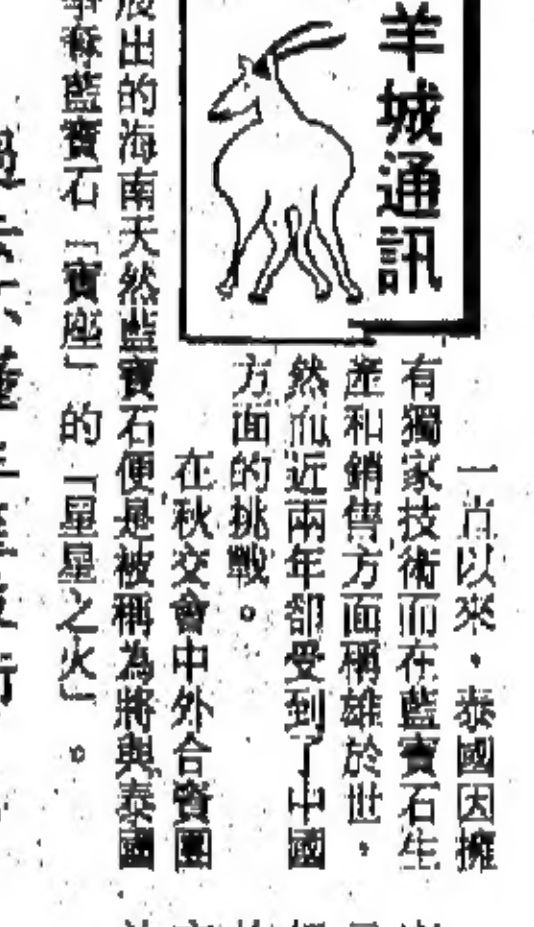 羊城通訊
一直以來，泰國因擁
有獨家技術而在藍寶石生
產和銷售方面稱雄於世，
然而近兩年卻受到了中國
方面的挑戰。
在秋交會中外合資團
展出的海南天然藍寶石便是被稱為將與泰國
爭奪藍寶石「寶座」的「星星之火」。